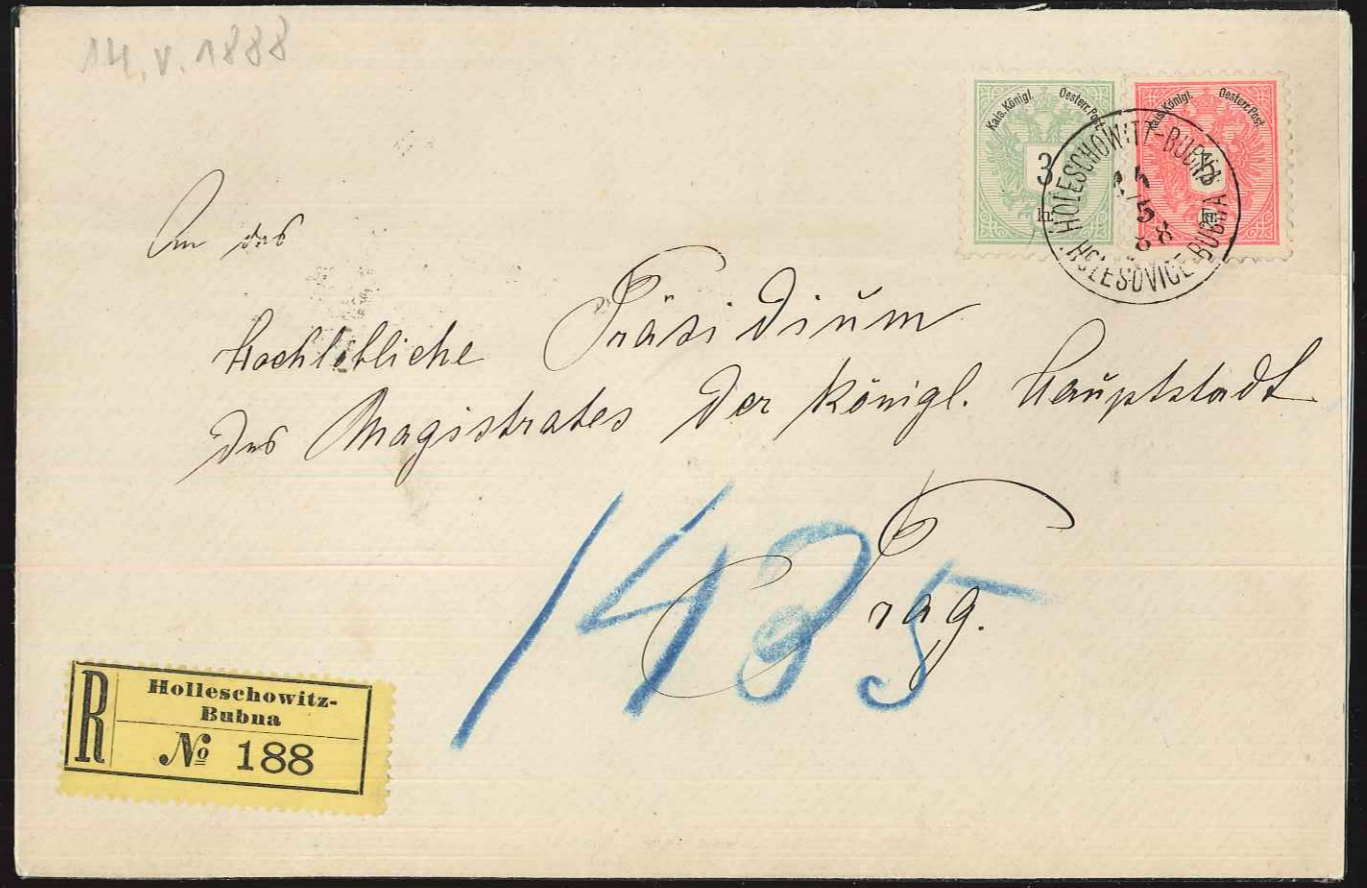 14. V. 1888
Kais. Königl. Oesterr. Post
3
kr
Kais. Königl. Oesterr. Post
5
HOLESCHOWITZ-BUBNA
14
5
88
HOLEŠOVICE-BUBNA
An das
hochlöbliche Präsidium
des Magistrates der königl. Hauptstadt
Prag.
1485
R
Holleschowitz-
Bubna
№ 188